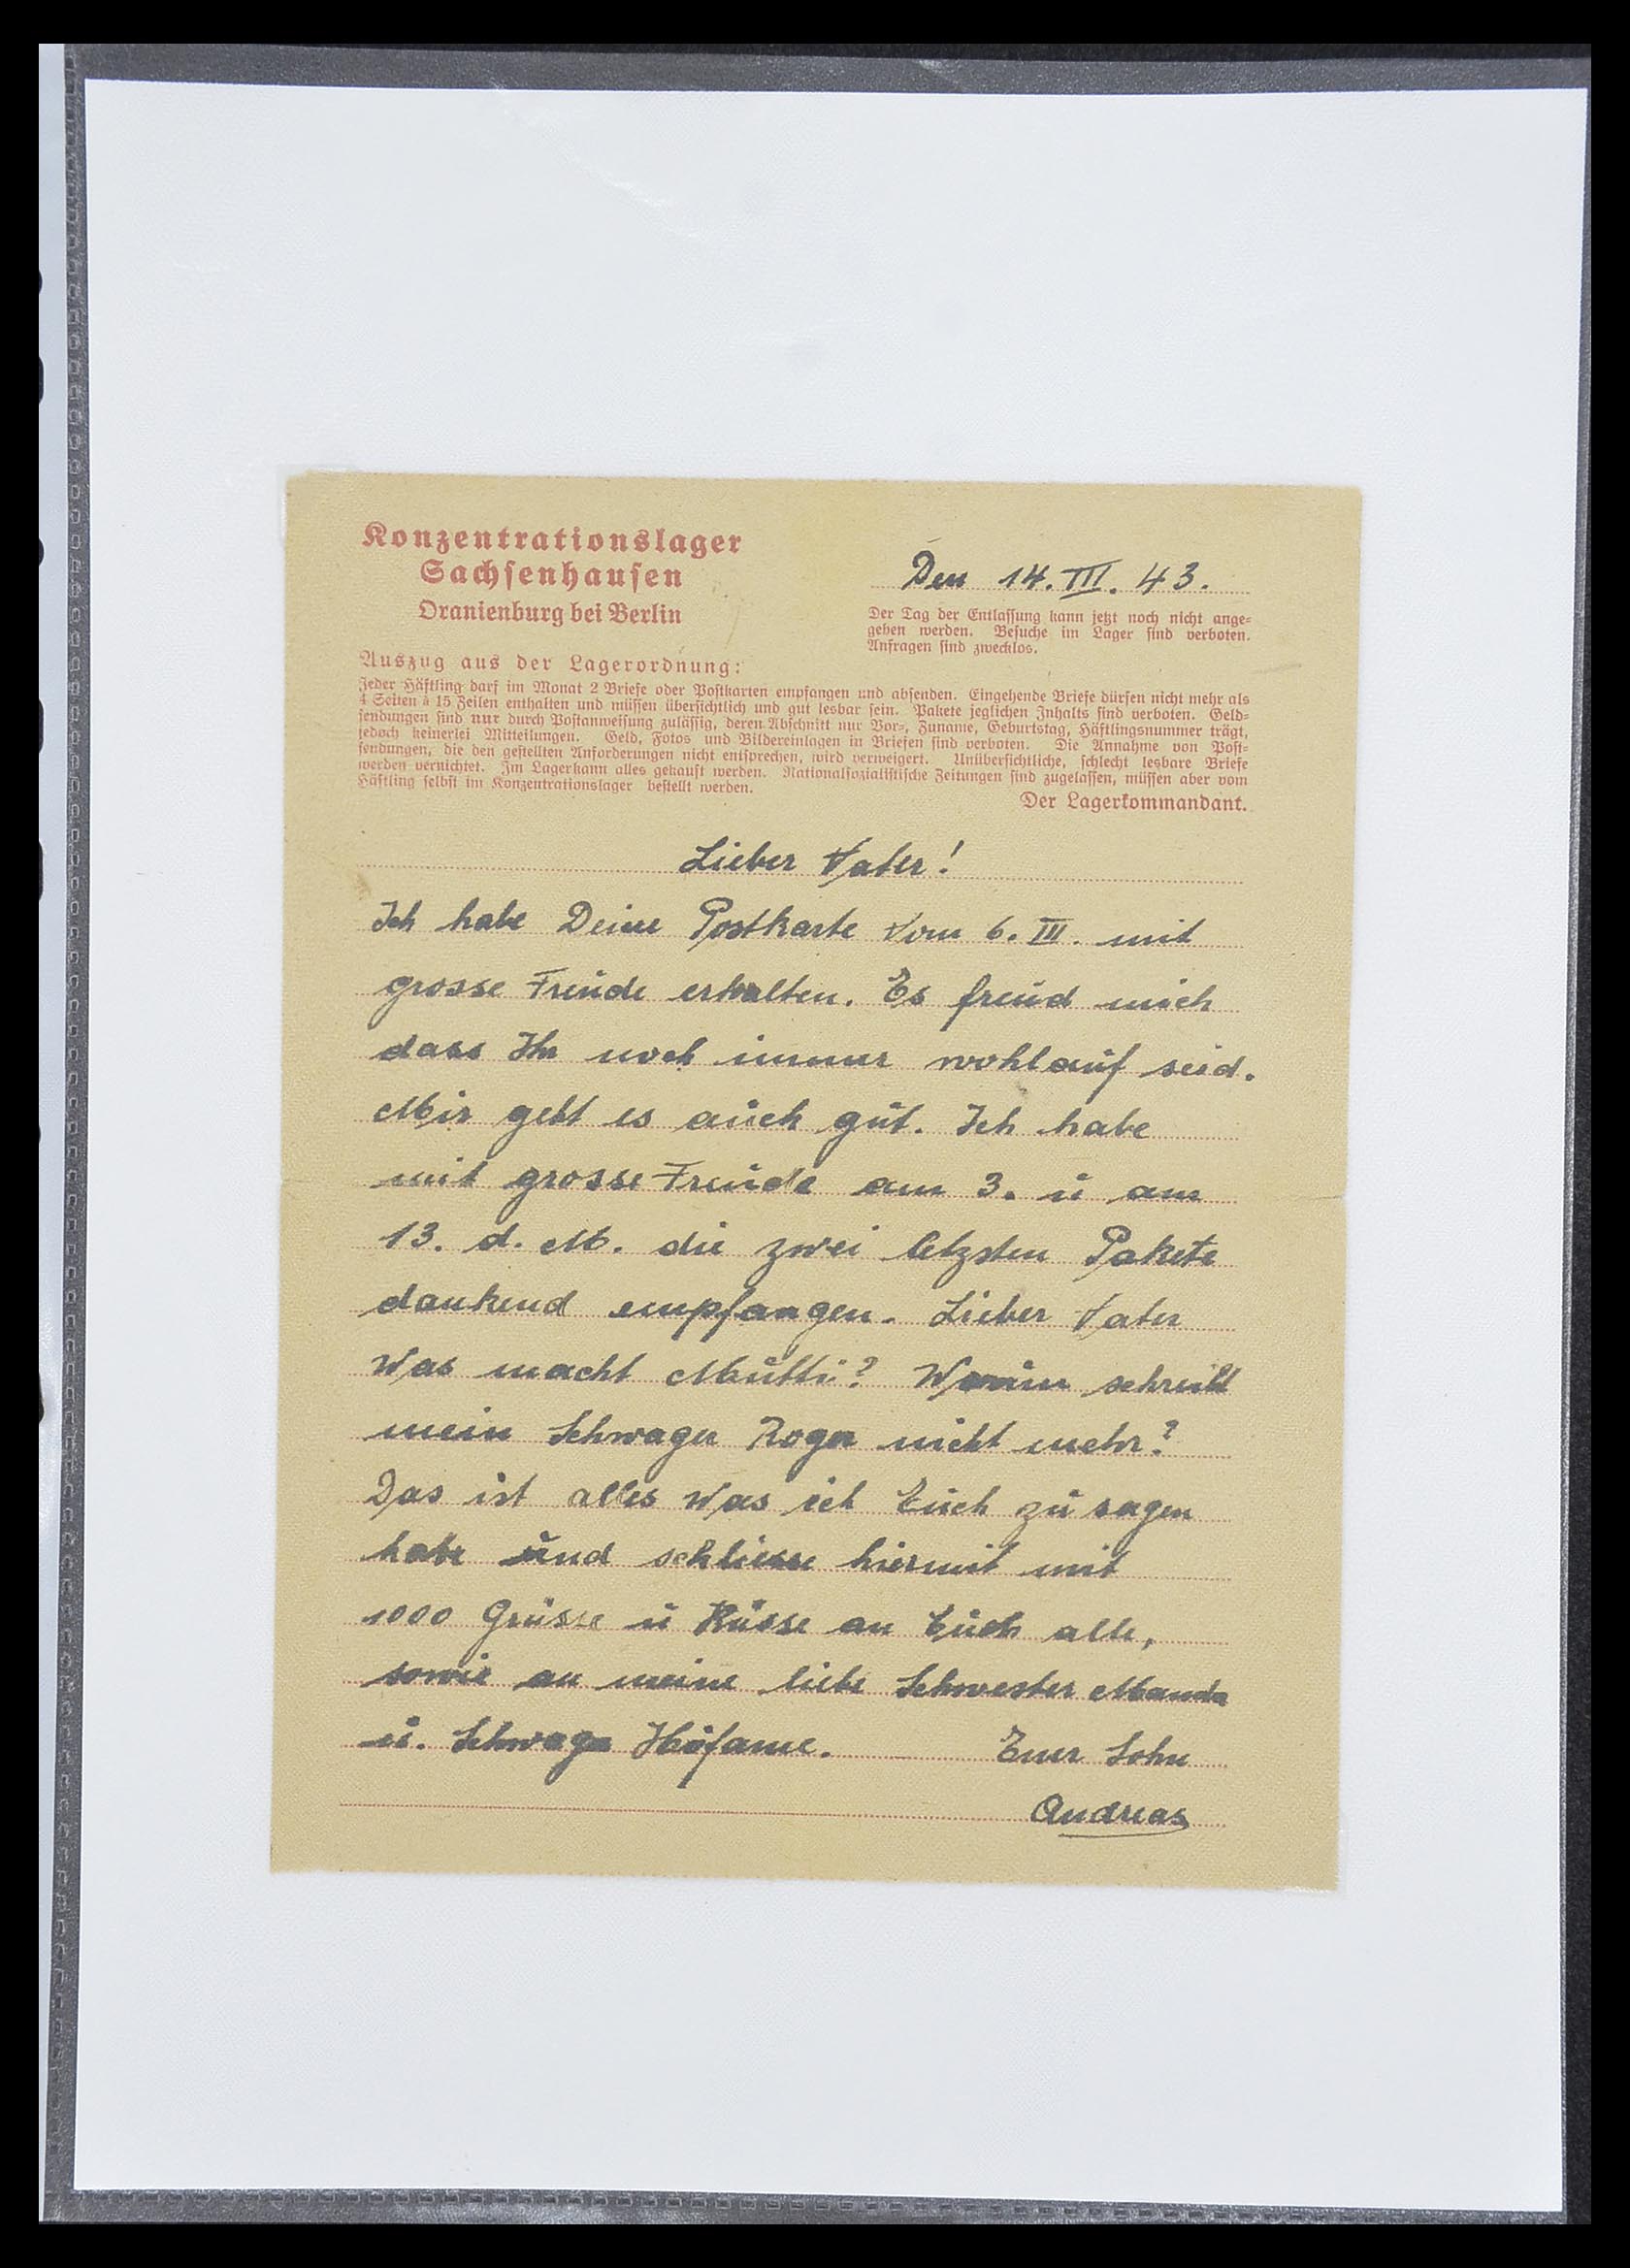 Konzentrationslager
Sachsenhausen
Oranienburg bei Berlin
Den 14. III. 43.
Der Tag der Entlassung kann jetzt noch nicht ange-
geben werden. Besuche im Lager sind verboten.
Anfragen sind zwecklos.
Auszug aus der Lagerordnung:
Jeder Häftling darf im Monat 2 Briefe oder Postkarten empfangen und absenden. Eingehende Briefe dürfen nicht mehr als
4 Seiten à 15 Zeilen enthalten und müssen übersichtlich und gut lesbar sein. Pakete jeglichen Inhalts sind verboten. Geld-
sendungen sind nur durch Postanweisung zulässig, deren Abschnitt nur Vor-, Zuname, Geburtstag, Häftlingsnummer trägt,
jedoch keinerlei Mitteilungen. Geld, Fotos und Bildereinlagen in Briefen sind verboten. Die Annahme von Post-
sendungen, die den gestellten Anforderungen nicht entsprechen, wird verweigert. Unübersichtliche, schlecht lesbare Briefe
werden vernichtet. Im Lager kann alles gekauft werden. Nationalsozialistische Zeitungen sind zugelassen, müssen aber vom
Häftling selbst im Konzentrationslager bestellt werden.
Der Lagerkommandant.
Lieber Vater!
Ich habe Deine Postkarte vom 6. III. mit
grosse Freude erhalten. Es freud mich
dass Ihr noch immer wohlauf seid.
Mir geht es auch gut. Ich habe
mit grosse Freude am 3. u am
13. d. M. die zwei letzsten Pakete
dankend empfangen. Lieber Vater
was macht Mutti? Warum schreibt
mein Schwager Roger nicht mehr?
Das ist alles was ich Euch zu sagen
habe und schliesse hiermit mit
1000 Grüsse u Küsse an Euch alle,
sowie an meine liebe Schwester Manda
u. Schwager Euer Sohn
Andreas